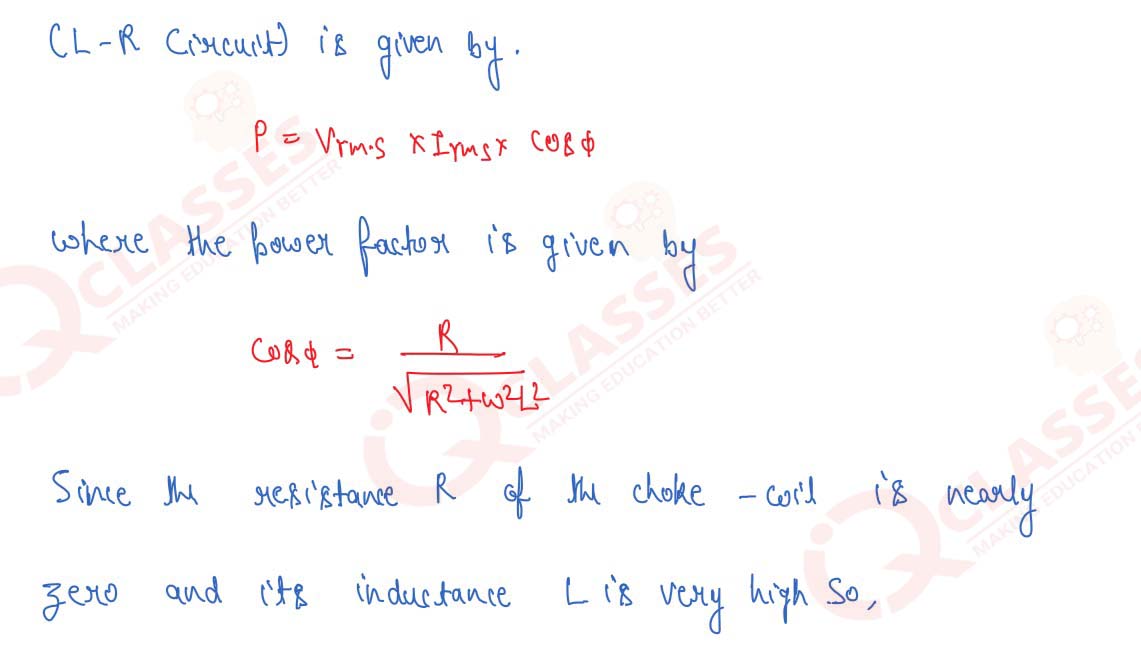 (L-R Circuit) is given by.
P = Vrm.s x Irms x cosϕ
where the power factor is given by
cosϕ = R / √R²+ω²L²
Since the resistance R of the choke - coil is nearly
zero and its inductance L is very high So,
CLASSES
MAKING EDUCATION BETTER
CLASSES
MAKING EDUCATION BETTER
CLASSES
MAKING EDUCATION BETTER